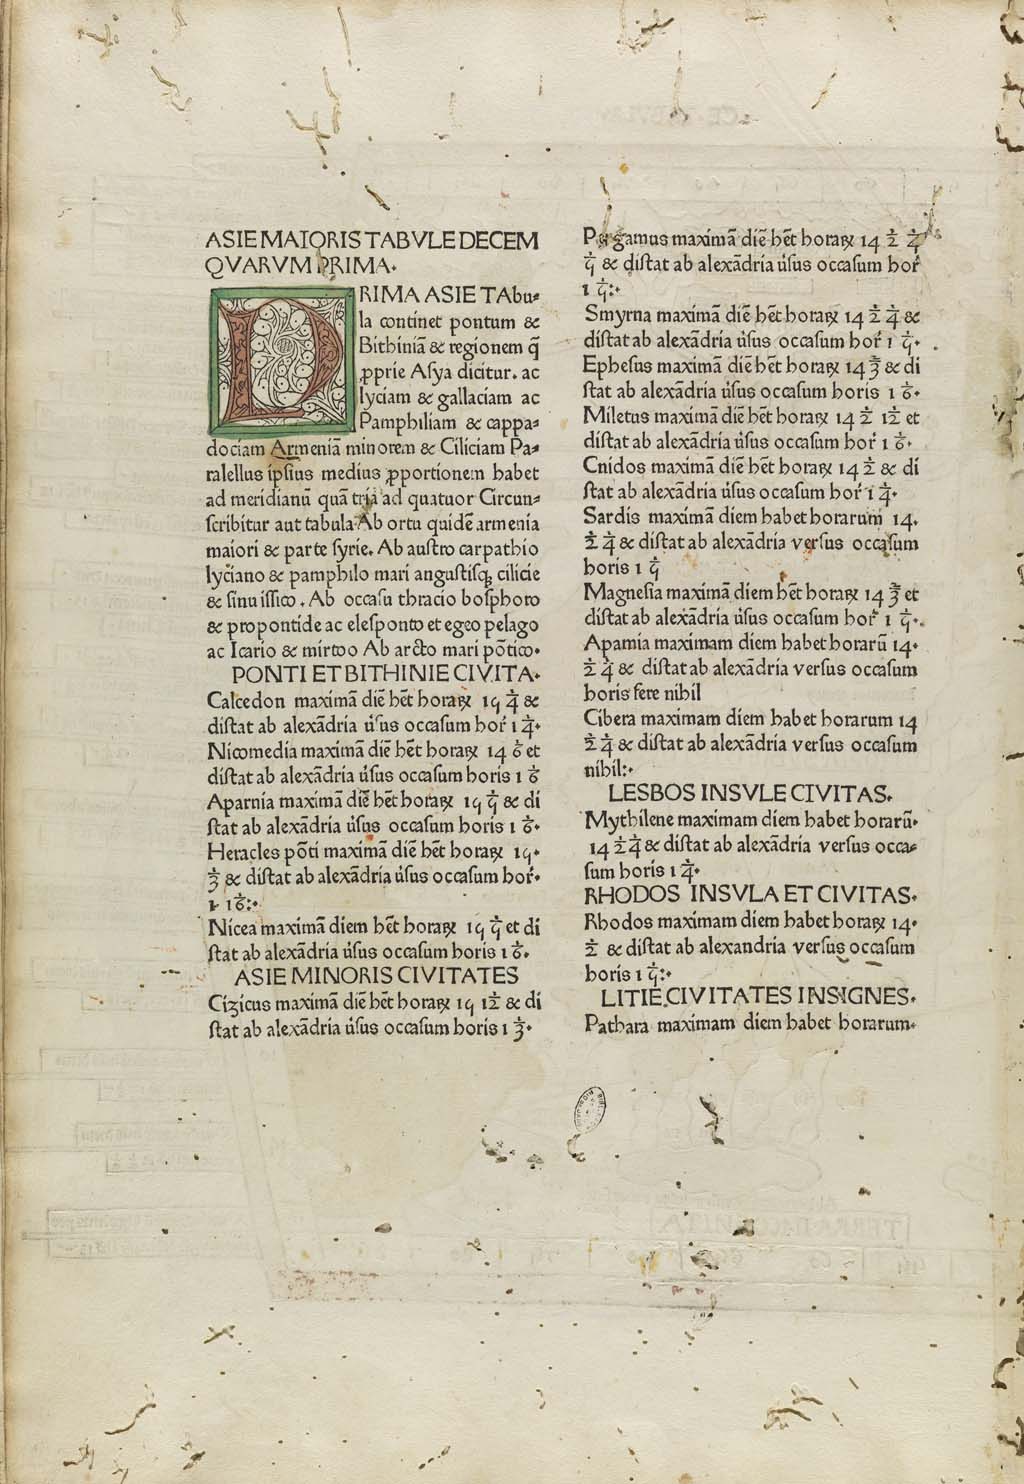 ASIE MAIORIS TABVLE DECEM
QVARVM PRIMA.
PRIMA ASIE TAbu⸗
la continet pontum &
Bithiniã & regionem q̃
ꝓprie Asya dicitur. ac
lyciam & gallaciam ac
Pamphiliam & cappa⸗
dociam Armeniã minorem & Ciliciam Pa⸗
ralellus ipsius medius ꝓportionem habet
ad meridianũ quã tria ad quatuor Circun⸗
scribitur aut tabula Ab ortu quidẽ armenia
maiori & parte syrie. Ab austro carpathio
lyciano & pamphilo mari angustisqꝫ cilicie
& sinu issico. Ab occasu thracio bosphoro
& propontide ac elesponto et egeo pelago
ac Icario & mirtoo Ab arcto mari põtico.
PONTI ET BITHINIE CIVITA.
Calcedon maximã diẽ hẽt horaꝝ 1ϥ 1/4 &
distat ab alexãdria ùsus occasum hor̉ 1 1/4.
Nicomedia maximã diẽ hẽt horaꝝ 14 1/6 et
distat ab alexãdria ùsus occasum horis 1 1/6
Aparnia maximã diẽ hẽt horaꝝ 1ϥ 1/ϥ & di
stat ab alexãdria ùsus occasum horis 1 1/6.
Heracles põti maximã diẽ hẽt horaꝝ 1ϥ.
1/3 & distat ab alexãdria ùsus occasum hor̉.
1 16:.
Nicea maximã diem hẽt horaꝝ 1ϥ 1/ϥ et di
stat ab alexãdria ùsus occasum horis 1 1/6.
ASIE MINORIS CIVITATES
Cizicus maximã diẽ hẽt horaꝝ 1ϥ 1/12 & di
stat ab alexãdria ùsus occasum horis 1 1/3.
Pergamus maximã diẽ hẽt horaꝝ 14 1/2 1/4
1/ϥ & distat ab alexãdria ùsus occasum hor̉
1 1/ϥ:.
Smyrna maximã diẽ hẽt horaꝝ 14 1/2 1/4 &
distat ab alexãdria ùsus occasum hor̉ 1 1/ϥ.
Ephesus maximã diẽ hẽt horaꝝ 14 2/3 & di
stat ab alexãdria ùsus occasum horis 1 1/6.
Miletus maximã diẽ hẽt horaꝝ 14 1/2 1/12 et
distat ab alexãdria ùsus occasum hor̉ 1 1/6.
Cnidos maximã diẽ hẽt horaꝝ 14 1/2 & di
stat ab alexãdria ùsus occasum hor̉ 1 1/4.
Sardis maximã diem habet horarum 14.
1/2 1/4 & distat ab alexãdria versus occasum
horis 1 1/ϥ
Magnesia maximã diem hẽt horaꝝ 14 2/3 et
distat ab alexãdria ùsus occasum hor̉ 1 1/ϥ.
Apamia maximam diem habet horarũ 14.
1/2 1/4 & distat ab alexãdria versus occasum
horis fere nihil
Cibera maximam diem habet horarum 14
1/2 1/4 & distat ab alexãdria versus occasum
nihil:.
LESBOS INSVLE CIVITAS.
Mythilene maximam diem habet horarũ.
14 1/2 1/4 & distat ab alexãdria versus occa⸗
sum horis 1 1/4.
RHODOS INSVLA ET CIVITAS.
Rhodos maximam diem habet horaꝝ 14.
1/2 & distat ab alexandria versus occasum
horis 1 1/ϥ:.
LITIE CIVITATES INSIGNES.
Pathara maximam diem habet horarum.